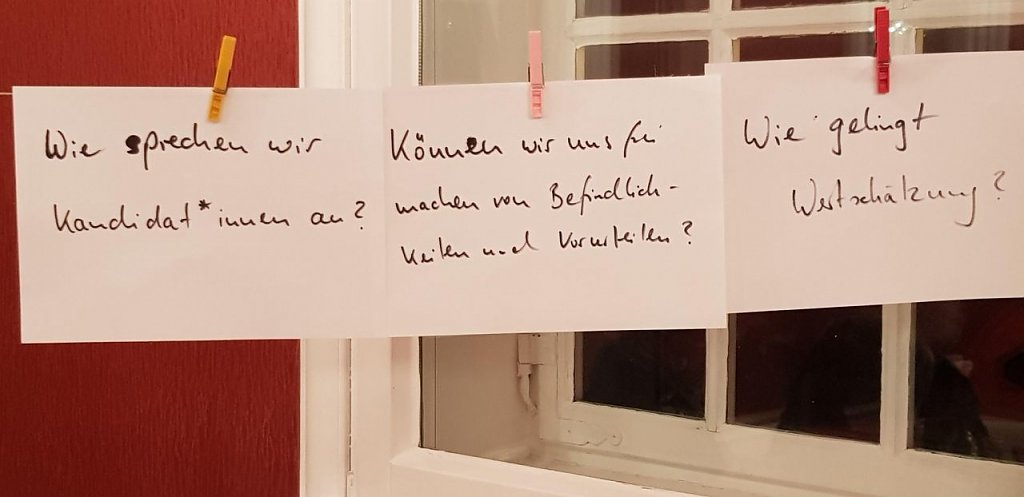 Wie sprechen wir
Kandidat*innen an?
Können wir uns frei
machen von Befindlich-
keiten und Vorurteilen?
Wie gelingt
Wertschätzung?